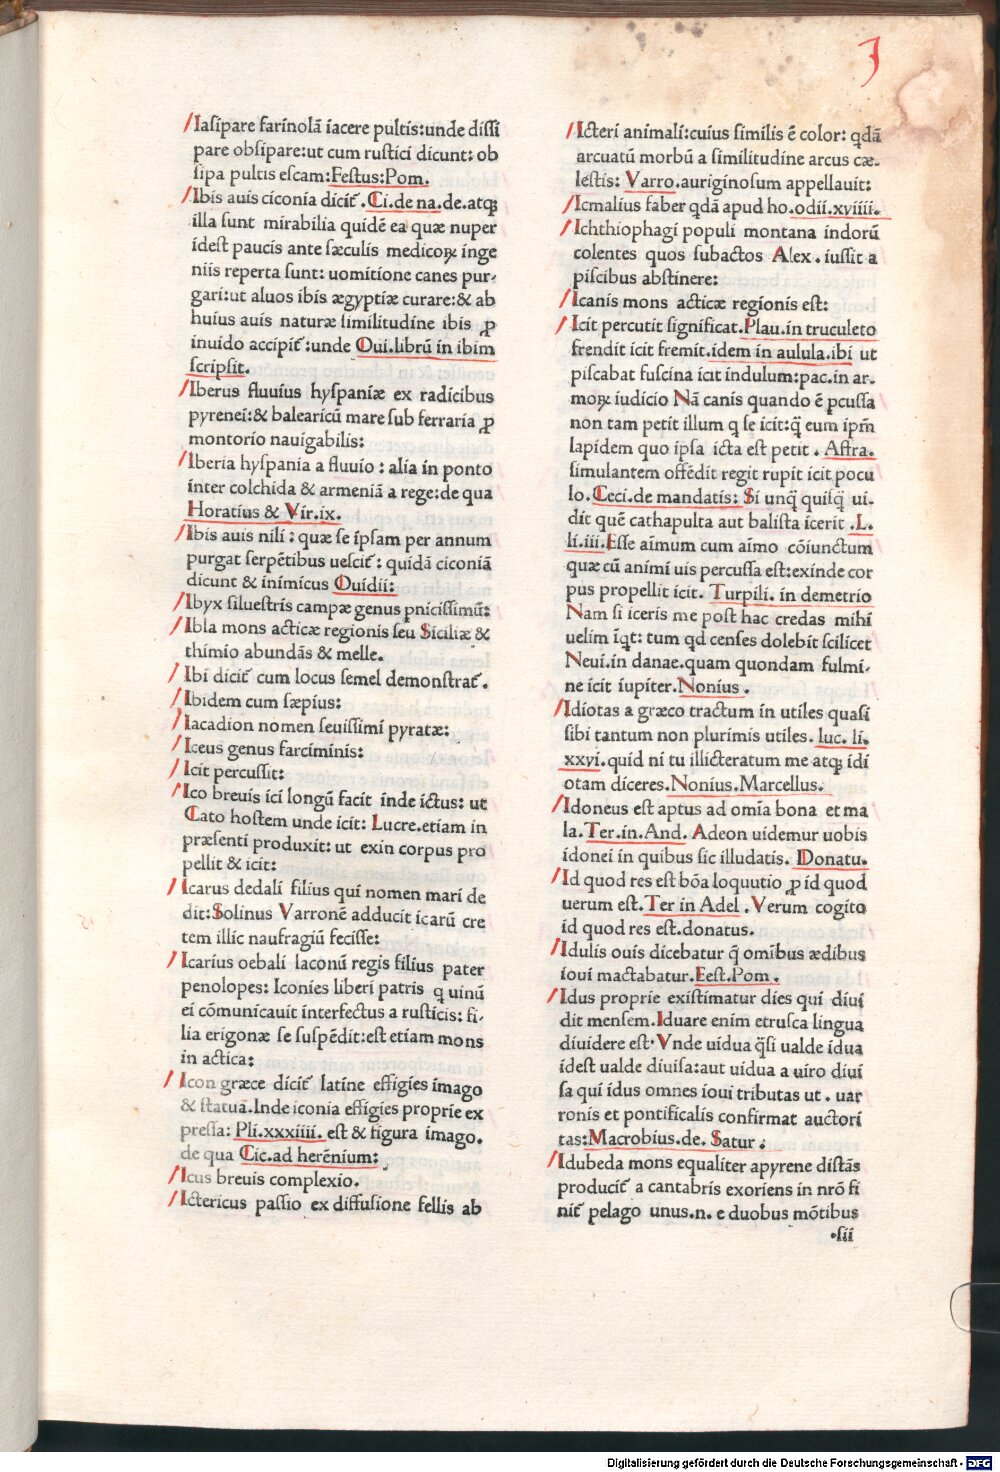 J
Iasipare farinolā iacere pultis:unde dissi
pare obsipare:ut cum rustici dicunt: ob
sipa pultis escam:Festus:Pom.
Ibis auis ciconia dicit̄ .Ci.de na.de.atqꝫ
illa sunt mirabilia quidē ea quæ nuper
idest paucis ante sæculis medicoꝝ inge
niis reperta sunt: uomitione canes pur-
gari:ut aluos ibis ægyptiæ curare:& ab
huius auis naturæ similitudine ibis ꝓ
inuido accipit̄:unde Oui.librū in ibim
scripsit.
Iberus fluuius hyspaniæ ex radicibus
pyrenei:& balearicū mare sub ferraria ꝓ
montorio nauigabilis:
Iberia hyspania a fluuio : alia in ponto
inter colchida & armeniā a rege:de qua
Horatius & Vir.ix.
Ibis auis nili : quæ se ipsam per annum
purgat serpētibus uescit̄ : quidā ciconiā
dicunt & inimicus Ouidii:
Ibyx siluestris campæ genus ꝑnicissimū:
Ibla mons acticæ regionis seu Siciliæ &
thimio abundās & melle.
Ibi dicit̄ cum locus semel demonstrat̄ .
Ibidem cum sæpius:
Iacadion nomen seuissimi pyratæ:
Iceus genus farciminis:
Icit percussit:
Ico breuis ici longū facit inde ictus: ut
Cato hostem unde icit: Lucre.etiam in
præsenti produxit: ut exin corpus pro
pellit & icit:
Icarus dedali filius qui nomen mari de
dit:Solinus Varronē adducit icarū cre
tem illic naufragiū fecisse:
Icarius oebali laconū regis filius pater
penolopes: Iconies liberi patris q uinū
ei cōmunicauit interfectus a rusticis: fi-
lia erigonæ se suspēdit:est etiam mons
in actica:
Icon græce dicit̄ latine effigies imago
& statua.Inde iconia effigies proprie ex
pressa: Pli.xxxiiii. est & figura imago.
de qua Cic.ad herēnium:
Icus breuis complexio.
Ictericus passio ex diffusione fellis ab
Icteri animali:cuius similis ē color: qdā
arcuatū morbū a similitudine arcus cæ-
lestis: Varro.auriginosum appellauit:
Icmalius faber qdā apud ho.odii.xviiii.
Ichthiophagi populi montana indorū
colentes quos subactos Alex. iussit a
piscibus abstinere:
Icanis mons acticæ regionis est:
Icit percutit significat.Plau.in truculeto
frendit icit fremit.idem in aulula.ibi ut
piscabat fuscina icit indulum:pac.in ar-
moꝝ iudicio Nā canis quando ē ꝑcussa
non tam petit illum q se icit:q̄ eum ipm̄
lapidem quo ipsa icta est petit . Astra.
simulantem offēdit regit rupit icit pocu
lo.Ceci.de mandatis: Si unq̄ quisq̄ ui-
dit quē cathapulta aut balista icerit .L.
li.iii.Esse aīmum cum aīmo cōiunctum
quæ cū animi uis percussa est:exinde cor
pus propellit icit. Turpili. in demetrio
Nam si iceris me post hac credas mihi
uelim iqt: tum qd censes dolebit scilicet
Neui.in danae.quam quondam fulmi-
ne icit iupiter.Nonius.
Idiotas a græco tractum in utiles quasi
sibi tantum non plurimis utiles. luc. li.
xxvi.quid ni tu illicteratum me atqꝫ idi
otam diceres.Nonius.Marcellus.
Idoneus est aptus ad omīa bona et ma
la.Ter.in.And. Adeon uidemur uobis
idonei in quibus sic illudatis. Donatu.
Id quod res est bōa loquutio ꝓ id quod
uerum est.Ter in Adel .Verum cogito
id quod res est.donatus.
Idulis ouis dicebatur q̄ omībus ædibus
ioui mactabatur.Fest.Pom.
Idus proprie existimatur dies qui diui
dit mensem.Iduare enim etrusca lingua
diuidere est.Vnde uidua q̄si ualde idua
idest ualde diuisa:aut uidua a uiro diui
sa qui idus omnes ioui tributas ut . uar
ronis et pontificalis confirmat auctori
tas:Macrobius.de. Satur.
Idubeda mons equaliter apyrene distās
producit̄ a cantabris exoriens in nrō fi
nit̄ pelago unus.n. e duobus mōtibus
.sii
Digitalisierung gefördert durch die Deutsche Forschungsgemeinschaft - DFG